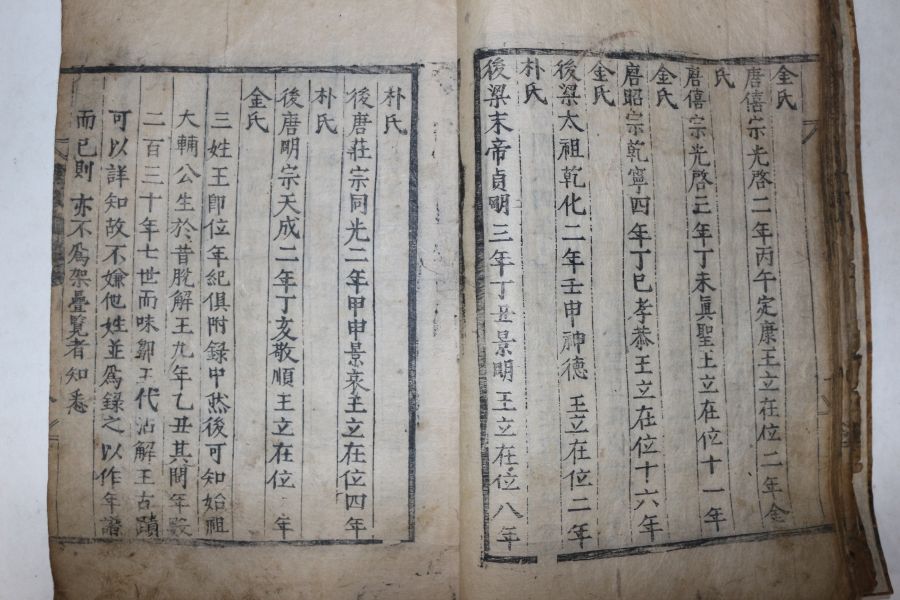 金氏
唐僖宗光啓二年丙午定康王立在位二年金
氏
唐僖宗光啓三年丁未眞聖王立在位十一年
金氏
唐昭宗乾寧四年丁巳孝恭王立在位十六年
金氏
後梁太祖乾化二年壬申神德王立在位二年
朴氏
後梁末帝貞明三年丁丑景明王立在位八年
朴氏
後唐莊宗同光二年甲申景哀王立在位四年
朴氏
後唐明宗天成二年丁亥敬順王立在位 年
金氏
三姓王即位年紀俱附録中然後可知始祖
大輔公生於昔脫解王九年乙丑其間年數
二百三十年七世而味鄒王代沾解王古蹟
可以詳知故不嫌他姓並爲録之以作年譜
而已則亦不爲架疊覽者知悉